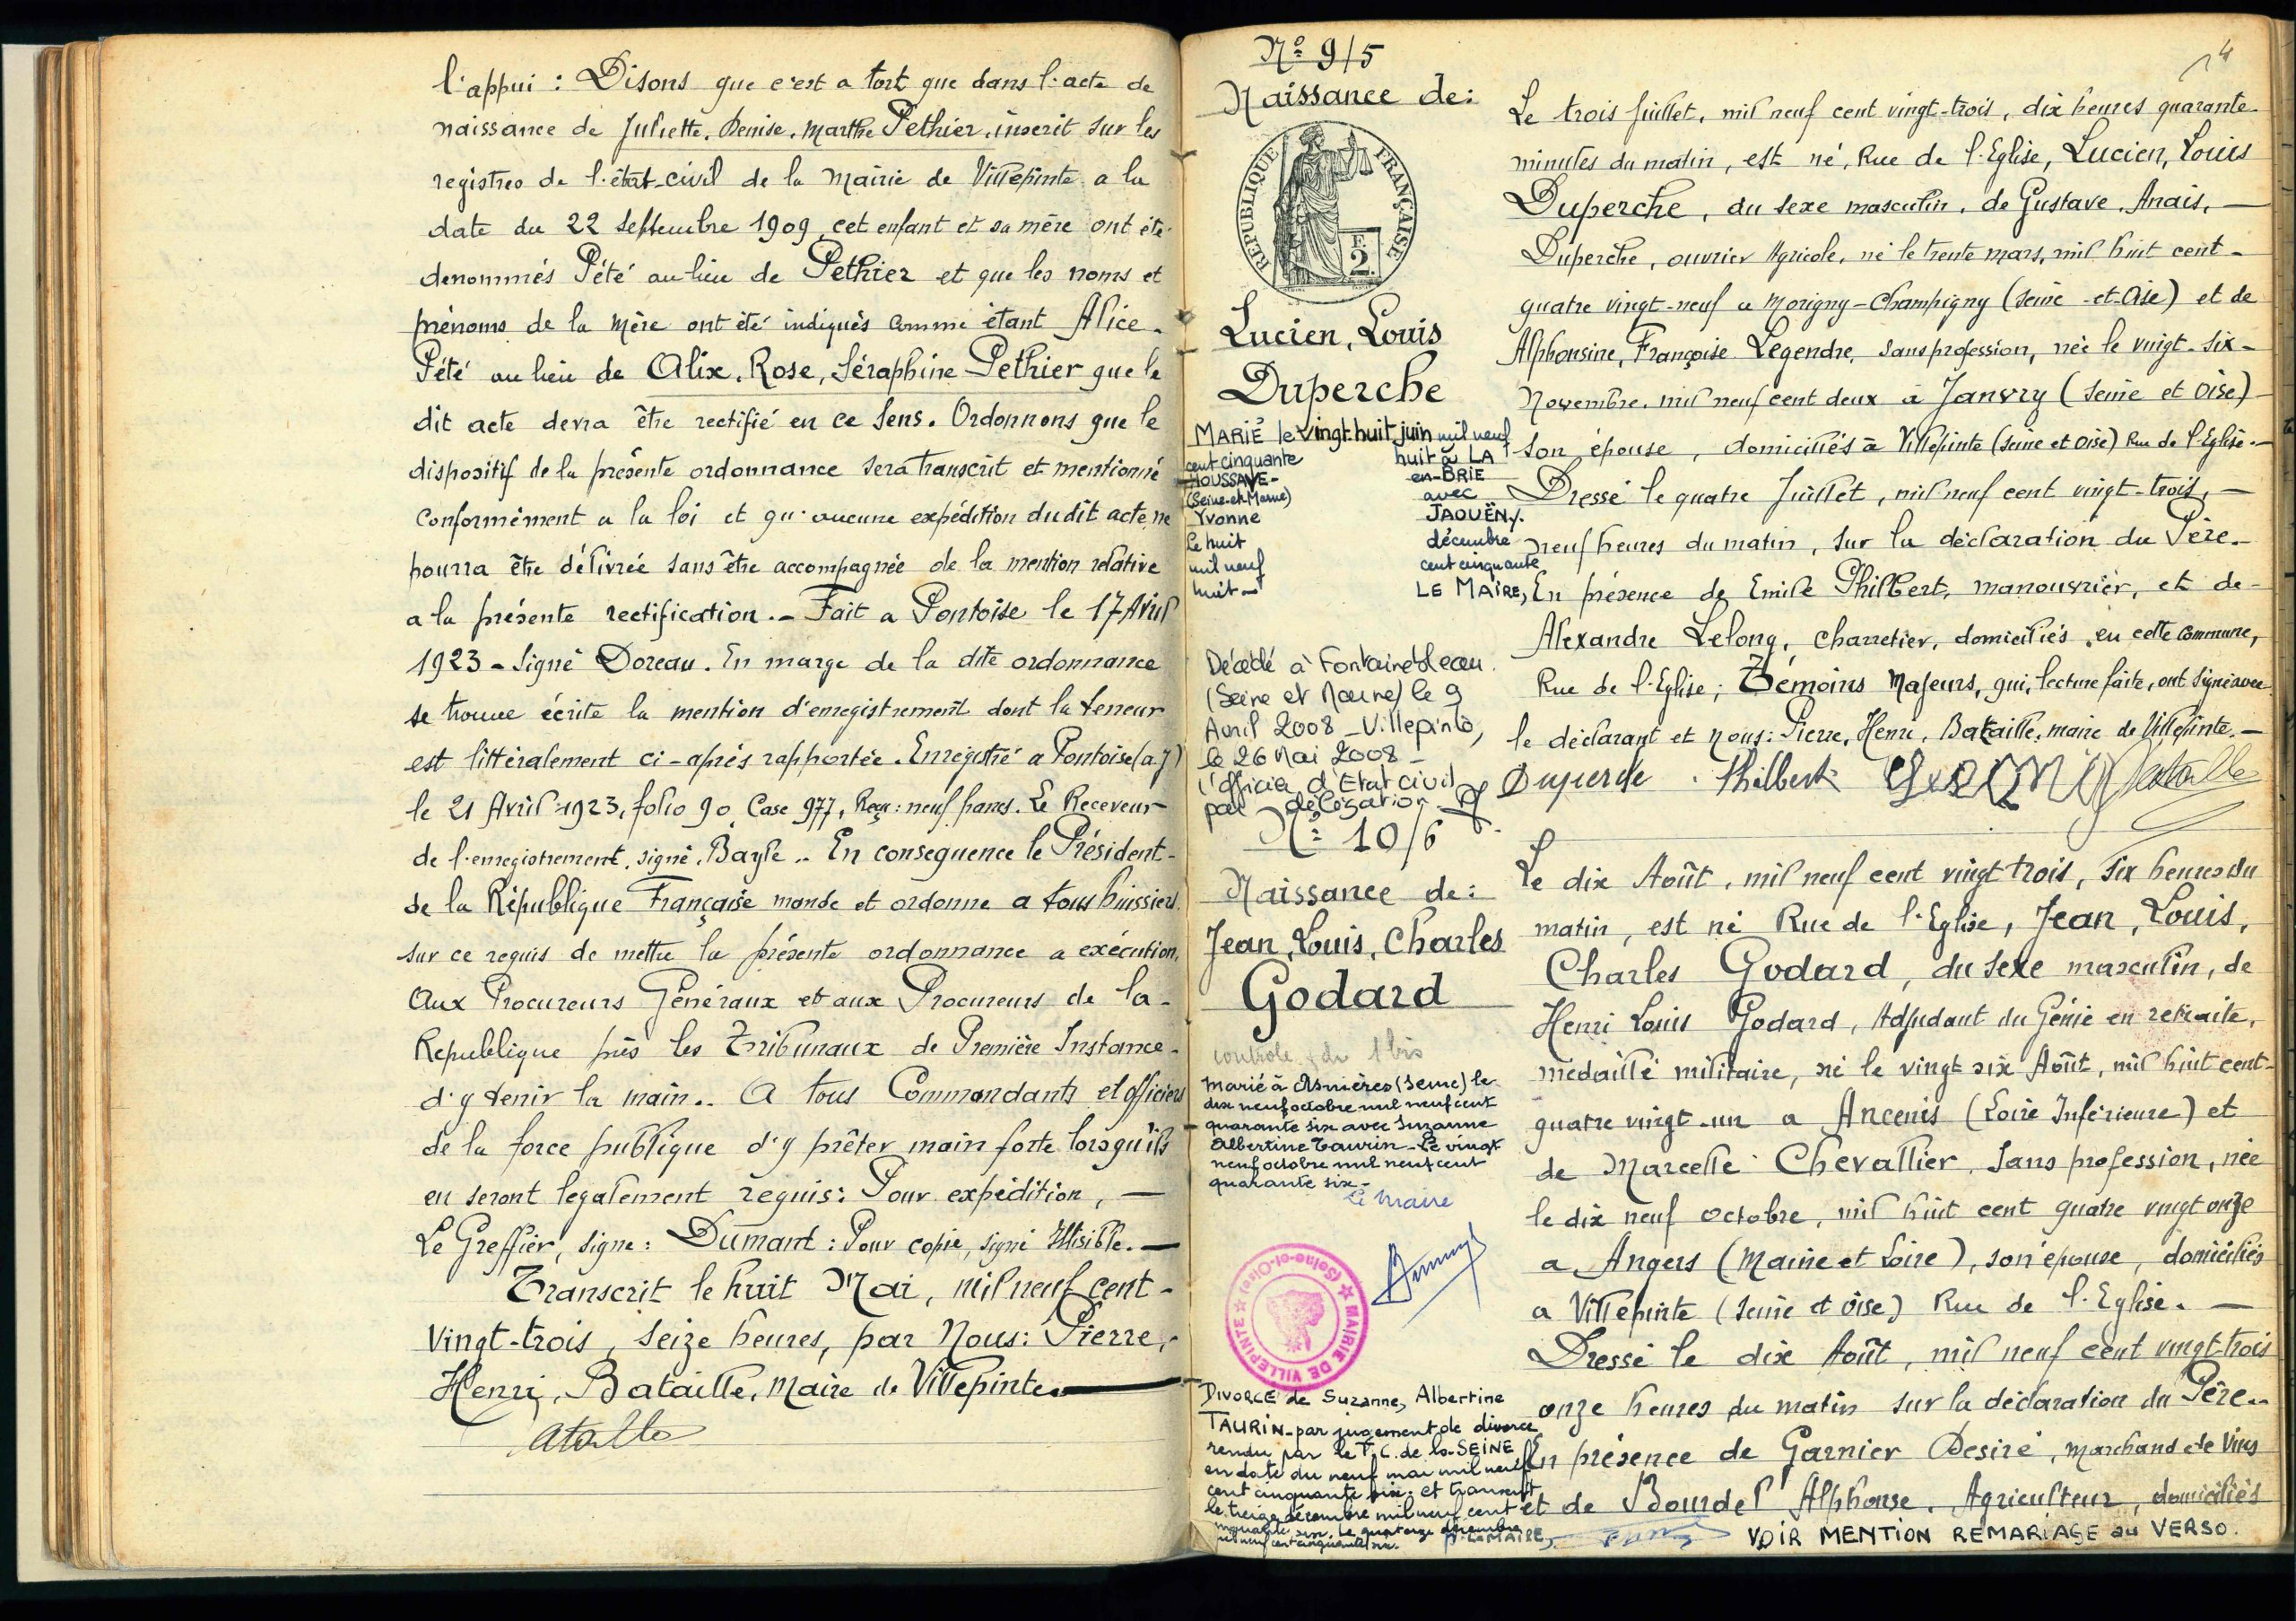 l'appui : Disons que c'est a tort que dans l'acte de
naissance de Juliette, Denise, Marthe Pethier, inscrit sur les
registres de l'état-civil de la Mairie de Villepinte a la
date du 22 Septembre 1909, cet enfant et sa mère ont été
denommés Pété au lieu de Pethier et que les noms et
prénoms de la Mère ont été indiqués comme étant Alice
Pété au lieu de Alix, Rose, Séraphine Pethier que le
dit acte devra être rectifié en ce sens. Ordonnons que le
dispositif de la présente ordonnance sera transcrit et mentionné
conformément a la loi et qu'aucune expédition dudit acte ne
pourra être délivrée sans être accompagnée de la mention relative
a la présente rectification.- Fait a Pontoise le 17 Avril
1923 - Signé Doreau. En marge de la dite ordonnance
se trouve écrite la mention d'enregistrement dont la teneur
est littéralement ci-après rapportée. Enregistré a Pontoise (a.j)
le 21 Avril 1923, folio 90 Case 977, Reçu: neuf francs. Le Receveur
de l'enregistrement, signé, Bayle.. En consequence le Président-
de la République Française mande et ordonne a tous huissiers
sur ce requis de mettre la présente ordonnance a exécution,
Aux Procureurs Généraux et aux Procureurs de la-
Republique près les Tribunaux de Première Instance-
d'y tenir la main.. A tous Commandants et officiers
de la force publique d'y prêter main forte lorsqu'ils
en seront legalement requis: Pour expédition, —
Le Greffier, signe: Dumant: Pour copie, signé Illisible.—
Transcrit le huit Mai, mil neuf cent-
vingt-trois, seize heures, par Nous: Pierre,
Henri, Bataille, Maire de Villepinte.—
N° 9/5
Naissance de:
RÉPUBLIQUE FRANÇAISE
F.
2.
Lucien, Louis
Duperche
MARIÉ le vingt-huit juin mil neuf
cent cinquante huit à LA
HOUSSAYE- en-BRIE
(Seine-et-Marne) avec
Yvonne JAOUËN./.
Le huit décembre
mil neuf cent cinquante
huit- LE MAIRE,
Décédé à Fontainebleau
(Seine et Marne) le 9
Avril 2008 - Villepinte,
le 26 Mai 2008 -
l'officier d'Etat civil
par délégation
4
Le trois Juillet, mil neuf cent vingt-trois, dix heures quarante-
minutes du matin, est né, Rue de l'Eglise, Lucien, Louis
Duperche, du sexe masculin, de Gustave, Anais, —
Duperche, ouvrier Agricole, né le trente mars, mil huit cent-
quatre vingt-neuf a Morigny-Champigny (Seine-et-Oise) et de
Alphonsine, Françoise Legendre, sans profession, née le vingt-six-
Novembre, mil neuf cent deux à Janvry (Seine et Oise)
son épouse, domiciliés à Villepinte (Seine et Oise) Rue de l'Eglise.—
Dressé le quatre Juillet, mil neuf cent vingt-trois, —
neuf heures du matin, sur la déclaration du Père.-
En présence de Emile Philbert, manouvrier, et de-
Alexandre Lelong, charretier, domiciliés en cette commune,
Rue de l'Eglise; Témoins Majeurs, qui, lecture faite, ont signé avec
le déclarant et nous: Pierre, Henri, Bataille, maire de Villepinte.—
Duperche. Philbert Bataille
N° 10/6
Naissance de:
Jean, Louis, Charles
Godard
Marié à Asnières (Seine) le
dix neuf octobre mil neuf cent
quarante six avec Suzanne
Albertine Taurin - Le vingt
neuf octobre mil neuf cent
quarante six -
Le Maire
MAIRIE DE VILLEPINTE (Seine-et-Oise)
DIVORCE de Suzanne, Albertine
TAURIN - par jugement de divorce
rendu par le T.C. de la SEINE
en date du neuf mai mil neuf
cent cinquante six: et transcrit
le treize décembre mil neuf cent
cinquante six. Le quatorze décembre
mil neuf cent cinquante six. P. LE MAIRE,
Le dix Août, mil neuf cent vingt trois, six heures du
matin, est né Rue de l'Eglise, Jean, Louis,
Charles Godard, du sexe masculin, de
Henri Louis Godard, Adjudant du Génie en retraite,
médaillé militaire, né le vingt six Août, mil huit cent-
quatre vingt-un a Ancenis (Loire Inférieure) et
de Marcelle Chevallier, sans profession, née
le dix neuf octobre, mil huit cent quatre vingt onze
a Angers (Maine et Loire), son épouse, domiciliés
a Villepinte (Seine et Oise) Rue de l'Eglise. —
Dressé le dix Août, mil neuf cent vingt-trois
onze heures du matin sur la déclaration du Père..
En présence de Garnier Desiré, marchand de Vins
et de Bourdel Alphonse, Agriculteur, domiciliés
VOIR MENTION REMARIAGE au VERSO.